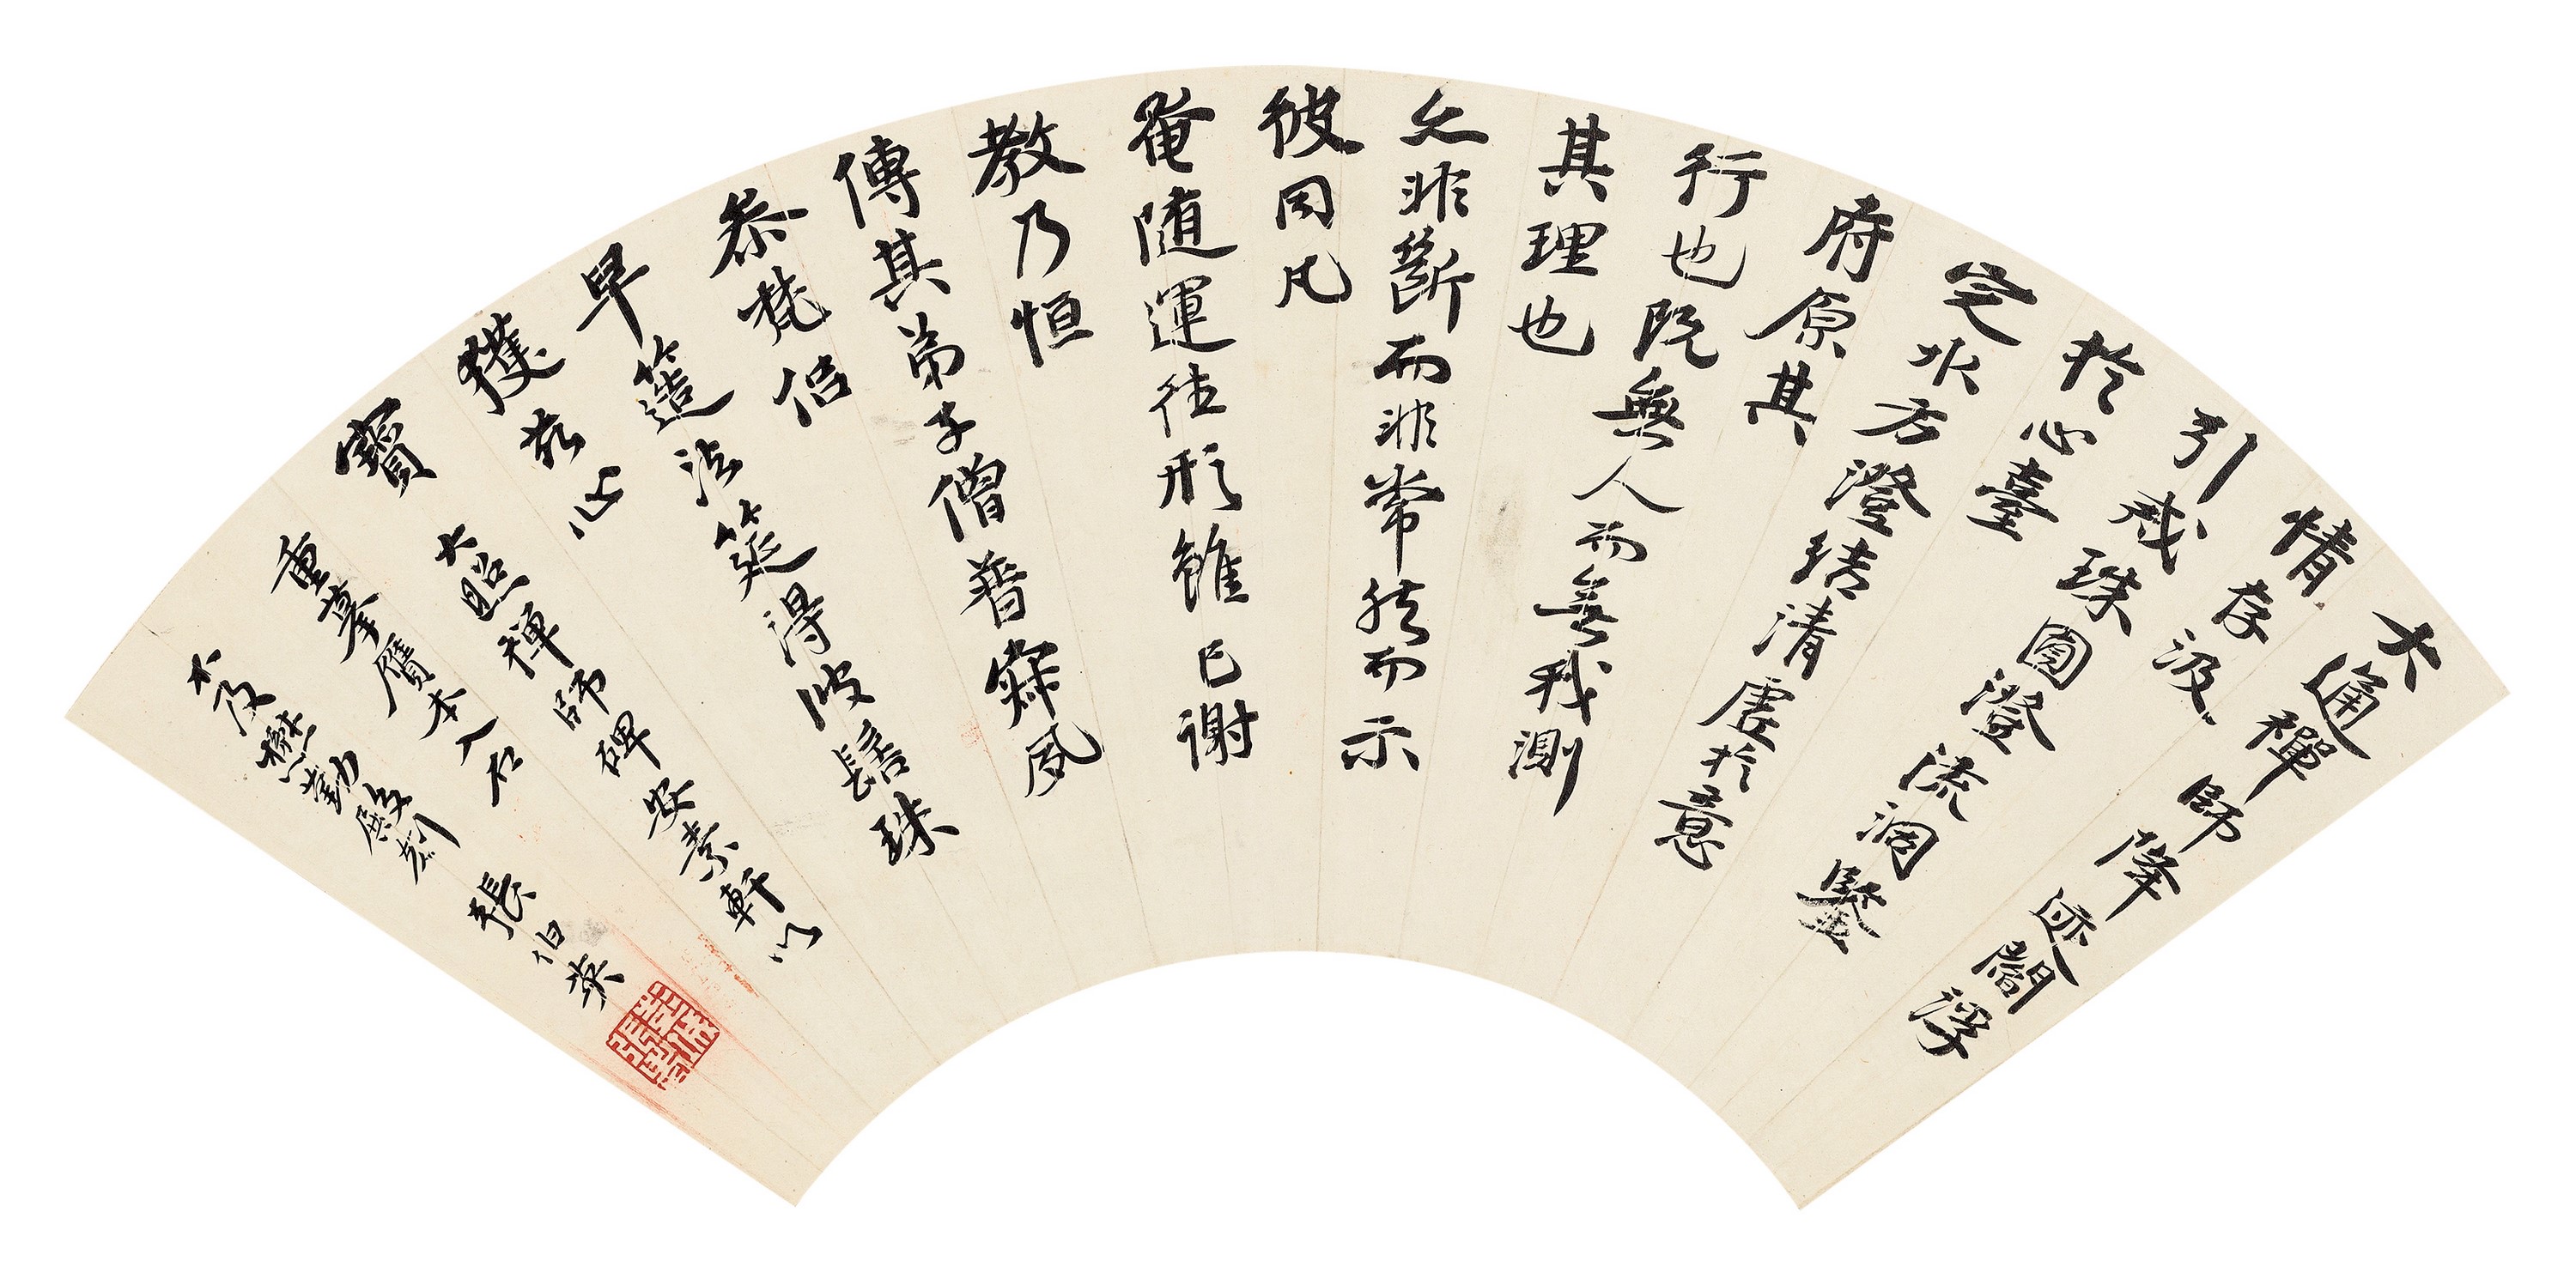 大通禪師降迹閻浮
情存汲
引戒珠圓澄流洞鑒
於心臺
定水方澄結清虛於意
府原其
行也既無人而無我測
其理也
亦非斷而非常然而示
彼同凡
奄隨運往形雖已謝
教乃恒
傳其弟子僧普寂夙
忝梵侶
早簉法筵得彼髻珠
獲茲心
寶 大照禪師碑安素軒以
重摹贗本入石
不及懋勤殿刻 張伯英